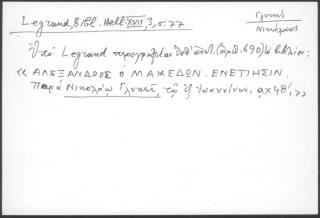 Legrand, Bibl. Hell. XVII, 3, σ. 77
Γλυκύς
Νικόλαος
Ὑπὸ Legrand περιγράφεται (ἀριθ. 690) βιβλίον:
« ΑΛΕΞΑΝΔΡΟΣ Ο ΜΑΚΕΔΩΝ. ΕΝΕΤΙΗΣΙΝ.
Παρὰ Νικολάῳ Γλυκεῖ, τῷ ἐξ Ἰωαννίνων, αχϟθ΄, »